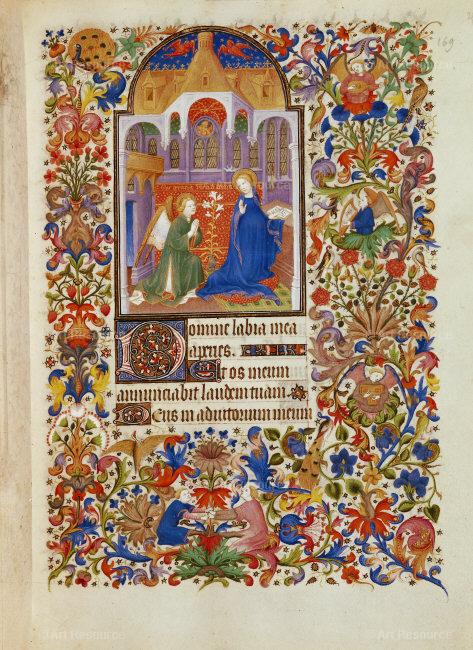 169
Domine labia mea
aperies.
Et os meum
annunciabit laudem tuam
Deus in adiutorium meum
Art Resource Art Resource